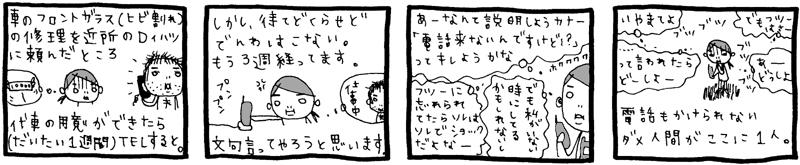 車のフロントガラス(ヒビ割れ)
の修理を近所のDイハツ
に頼んだところ
代車の用意ができたら
(だいたい1週間)TELすると。
しかし、待てどくらせど
でんわはこない。
もう3週経ってます。
プンプン
仕事中
文句言ってやろうと思います。
あーなんて説明しようカナー
「電話来ないんですけど!?」
ってキレようかな
ホワワワワ
でも私がいな
時にしてる
かもしれないし
フツーに
忘れられ
てたらソレは
ソレでショック
だよなー
いやまてよ
でもフツーは
ブツ
ブツ
って言われたら
どーしよー
あー
どうしよ
電話もかけられない
ダメ人間がここに1人。